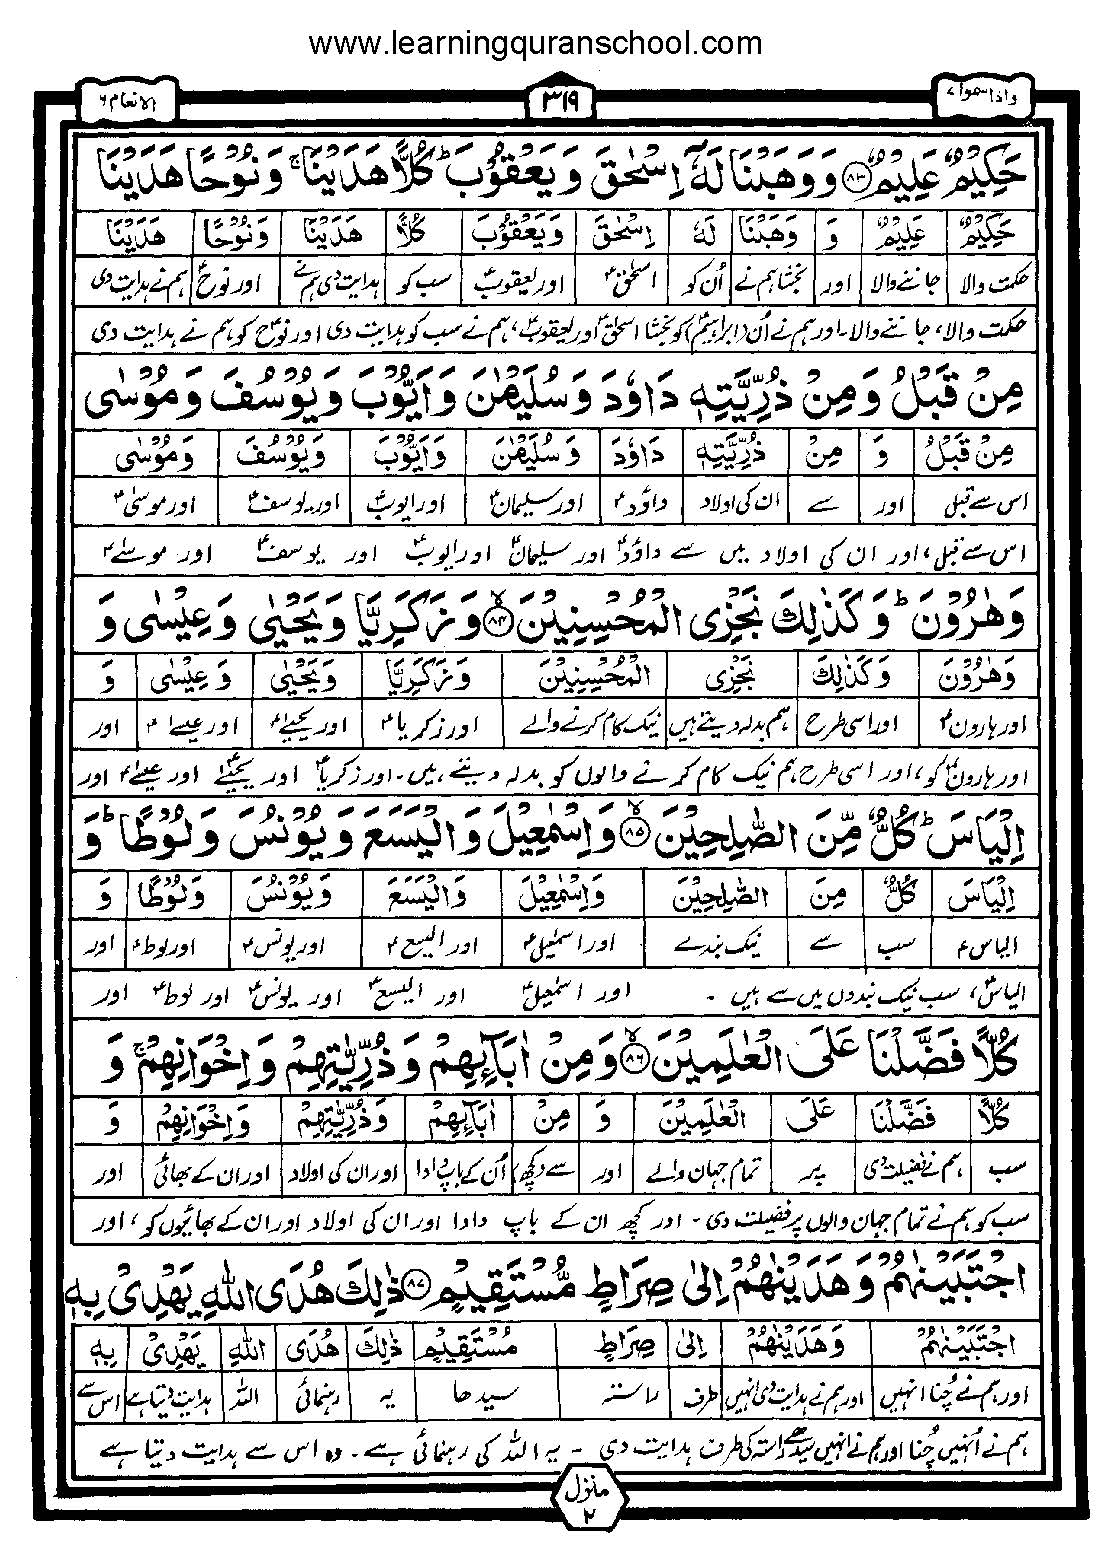 www.learningquranschool.com
واذا سمعوا ۷ ۳۱۹ الانعام ۶
حَكِيْمٌ عَلِيْمٌ ﴿۸۳﴾ وَ وَهَبْنَا لَهٗۤ اِسْحٰقَ وَ يَعْقُوْبَ ؕ كُلًّا هَدَيْنَا ۚ وَ نُوْحًا هَدَيْنَا
حَكِيْمٌ عَلِيْمٌ وَ وَهَبْنَا لَهٗ اِسْحٰقَ وَيَعْقُوْبَ كُلًّا هَدَيْنَا وَنُوْحًا هَدَيْنَا
حکمت والا جاننے والا اور بخشا ہم نے اُن کو اسحٰقؑ اور یعقوبؑ سب کو ہدایت دی ہم نے اور نوحؑ ہم نے ہدایت دی
حکمت والا، جاننے والا۔ اور ہم نے اُن (ابراہیمؑ) کو بخشا اسحٰقؑ اور یعقوبؑ، ہم نے سب کو ہدایت دی اور نوحؑ کو ہم نے ہدایت دی
مِنْ قَبْلُ وَ مِنْ ذُرِّيَّتِهٖ دَاوٗدَ وَ سُلَيْمٰنَ وَ اَيُّوْبَ وَ يُوْسُفَ وَ مُوْسٰى
مِنْ قَبْلُ وَ مِنْ ذُرِّيَّتِهٖ دَاوٗدَ وَ سُلَيْمٰنَ وَاَيُّوْبَ وَيُوْسُفَ وَمُوْسٰى
اس سے قبل اور سے ان کی اولاد داوٗدؑ اور سلیمانؑ اور ایوبؑ اور یوسفؑ اور موسیٰؑ
اس سے قبل، اور ان کی اولاد میں سے داؤدؑ اور سلیمانؑ اور ایوبؑ اور یوسفؑ اور موسےٰؑ
وَ هٰرُوْنَ ؕ وَ كَذٰلِكَ نَجْزِى الْمُحْسِنِيْنَ ۙ﴿۸۴﴾ وَ زَكَرِيَّا وَ يَحْيٰى وَ عِيْسٰى وَ
وَهٰرُوْنَ وَكَذٰلِكَ نَجْزِى الْمُحْسِنِيْنَ وَزَكَرِيَّا وَيَحْيٰى وَ عِيْسٰى وَ
اور ہارونؑ اور اسی طرح ہم بدلہ دیتے ہیں نیک کام کرنے والے اور زکریاؑ اور یحیےٰؑ اور عیسےٰؑ اور
اور ہارونؑ کو، اور اسی طرح ہم نیک کام کرنے والوں کو بدلہ دیتے ہیں۔ اور زکریاؑ اور یحیےٰؑ اور عیسےٰؑ اور
اِلْيَاسَ ؕ كُلٌّ مِّنَ الصّٰلِحِيْنَ ۙ﴿۸۵﴾ وَ اِسْمٰعِيْلَ وَ الْيَسَعَ وَ يُوْنُسَ وَ لُوْطًا ؕ وَ
اِلْيَاسَ كُلٌّ مِنَ الصّٰلِحِيْنَ وَاِسْمٰعِيْلَ وَالْيَسَعَ وَيُوْنُسَ وَلُوْطًا وَ
الیاسؑ سب سے نیک بندے اور اسمٰعیلؑ اور الیسعؑ اور یونسؑ اور لوطؑ اور
الیاسؑ، سب نیک بندوں میں سے ہیں۔ اور اسمٰعیلؑ اور الیسعؑ اور یونسؑ اور لوطؑ اور
كُلًّا فَضَّلْنَا عَلَى الْعٰلَمِيْنَ ۙ﴿۸۶﴾ وَ مِنْ اٰبَآئِهِمْ وَ ذُرِّيّٰتِهِمْ وَ اِخْوَانِهِمْ ۚ وَ
كُلًّا فَضَّلْنَا عَلَى الْعٰلَمِيْنَ وَ مِنْ اٰبَآئِهِمْ وَذُرِّيّٰتِهِمْ وَاِخْوَانِهِمْ وَ
سب ہم نے فضیلت دی پر تمام جہان والے اور سے کچھ اُن کے باپ دادا اور ان کی اولاد اور ان کے بھائی اور
سب کو ہم نے تمام جہان والوں پر فضیلت دی۔ اور کچھ ان کے باپ دادا اور ان کی اولاد اور ان کے بھائیوں کو، اور
اجْتَبَيْنٰهُمْ وَ هَدَيْنٰهُمْ اِلٰى صِرَاطٍ مُّسْتَقِيْمٍ ﴿۸۷﴾ ذٰلِكَ هُدَى اللّٰهِ يَهْدِىْ بِهٖ
اجْتَبَيْنٰهُمْ وَهَدَيْنٰهُمْ اِلٰى صِرَاطٍ مُسْتَقِيْمٍ ذٰلِكَ هُدَى اللّٰهِ يَهْدِىْ بِهٖ
اور ہم نے چُنا انہیں اور ہم نے ہدایت دی انہیں طرف راستہ سیدھا یہ رہنمائی اللہ ہدایت دیتا ہے اس سے
ہم نے اُنہیں چُنا اور ہم نے انہیں سیدھے راستہ کی طرف ہدایت دی۔ یہ اللہ کی رہنمائی ہے۔ وہ اس سے ہدایت دیتا ہے
منزل
۲